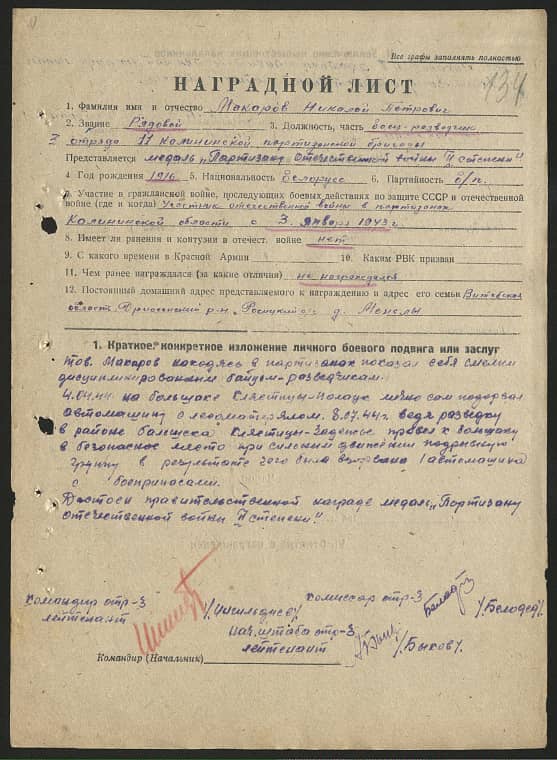 Все графы заполнять полностью
134
НАГРАДНОЙ ЛИСТ
1. Фамилия имя и отчество Макаров Николай Петрович
2. Звание Рядовой 3. Должность, часть боец-разведчик
отряда 11 Калининской партизанской бригады
Представляется медаль „Партизану отечественной войны II степени"
4. Год рождения 1916 5. Национальность Белорусс 6. Партийность б/п.
7. Участие в гражданской войне, последующих боевых действиях по защите СССР и отечественной
войне (где и когда) Участник отечественной войны в партизанах
Калининской области с 3. января 1943 г.
8. Имеет ли ранения и контузии в отечест. войне нет
9. С какого времени в Красной Армии 10. Каким РВК призван
11. Чем ранее награждался (за какие отличия) не награждался
12. Постоянный домашний адрес представляемого к награждению и адрес его семьи Витебская
область Дриссенский р-н д.
1. Краткое, конкретное изложение личного боевого подвига или заслуг
тов. Макаров находясь в партизанах показал себя смелым
дисциплинированным бойцом-разведчиком.
4.04.44. на большаке Клястицы-Полоцк лично сам подорвал
автомашину с лесоматерялом. 8.07.44 г. ведя разведку
в районе большака Клястицы- провел к большаку
в безопасное место при сильном движении подрывную
группу в результате чего была взорвана 1 автомашина
с боеприпасами.
Достоен правительственной награде медаль „Партизану
отечественной войны II степени"
командир отр-3 комиссар отр-3
лейтенант /Белодед/
нач. штаба отр-3
лейтенант /Быков/.
Командир (Начальник)